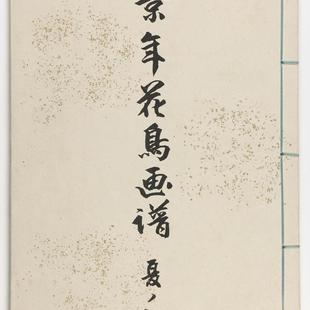 景年花鳥画譜 夏ノ